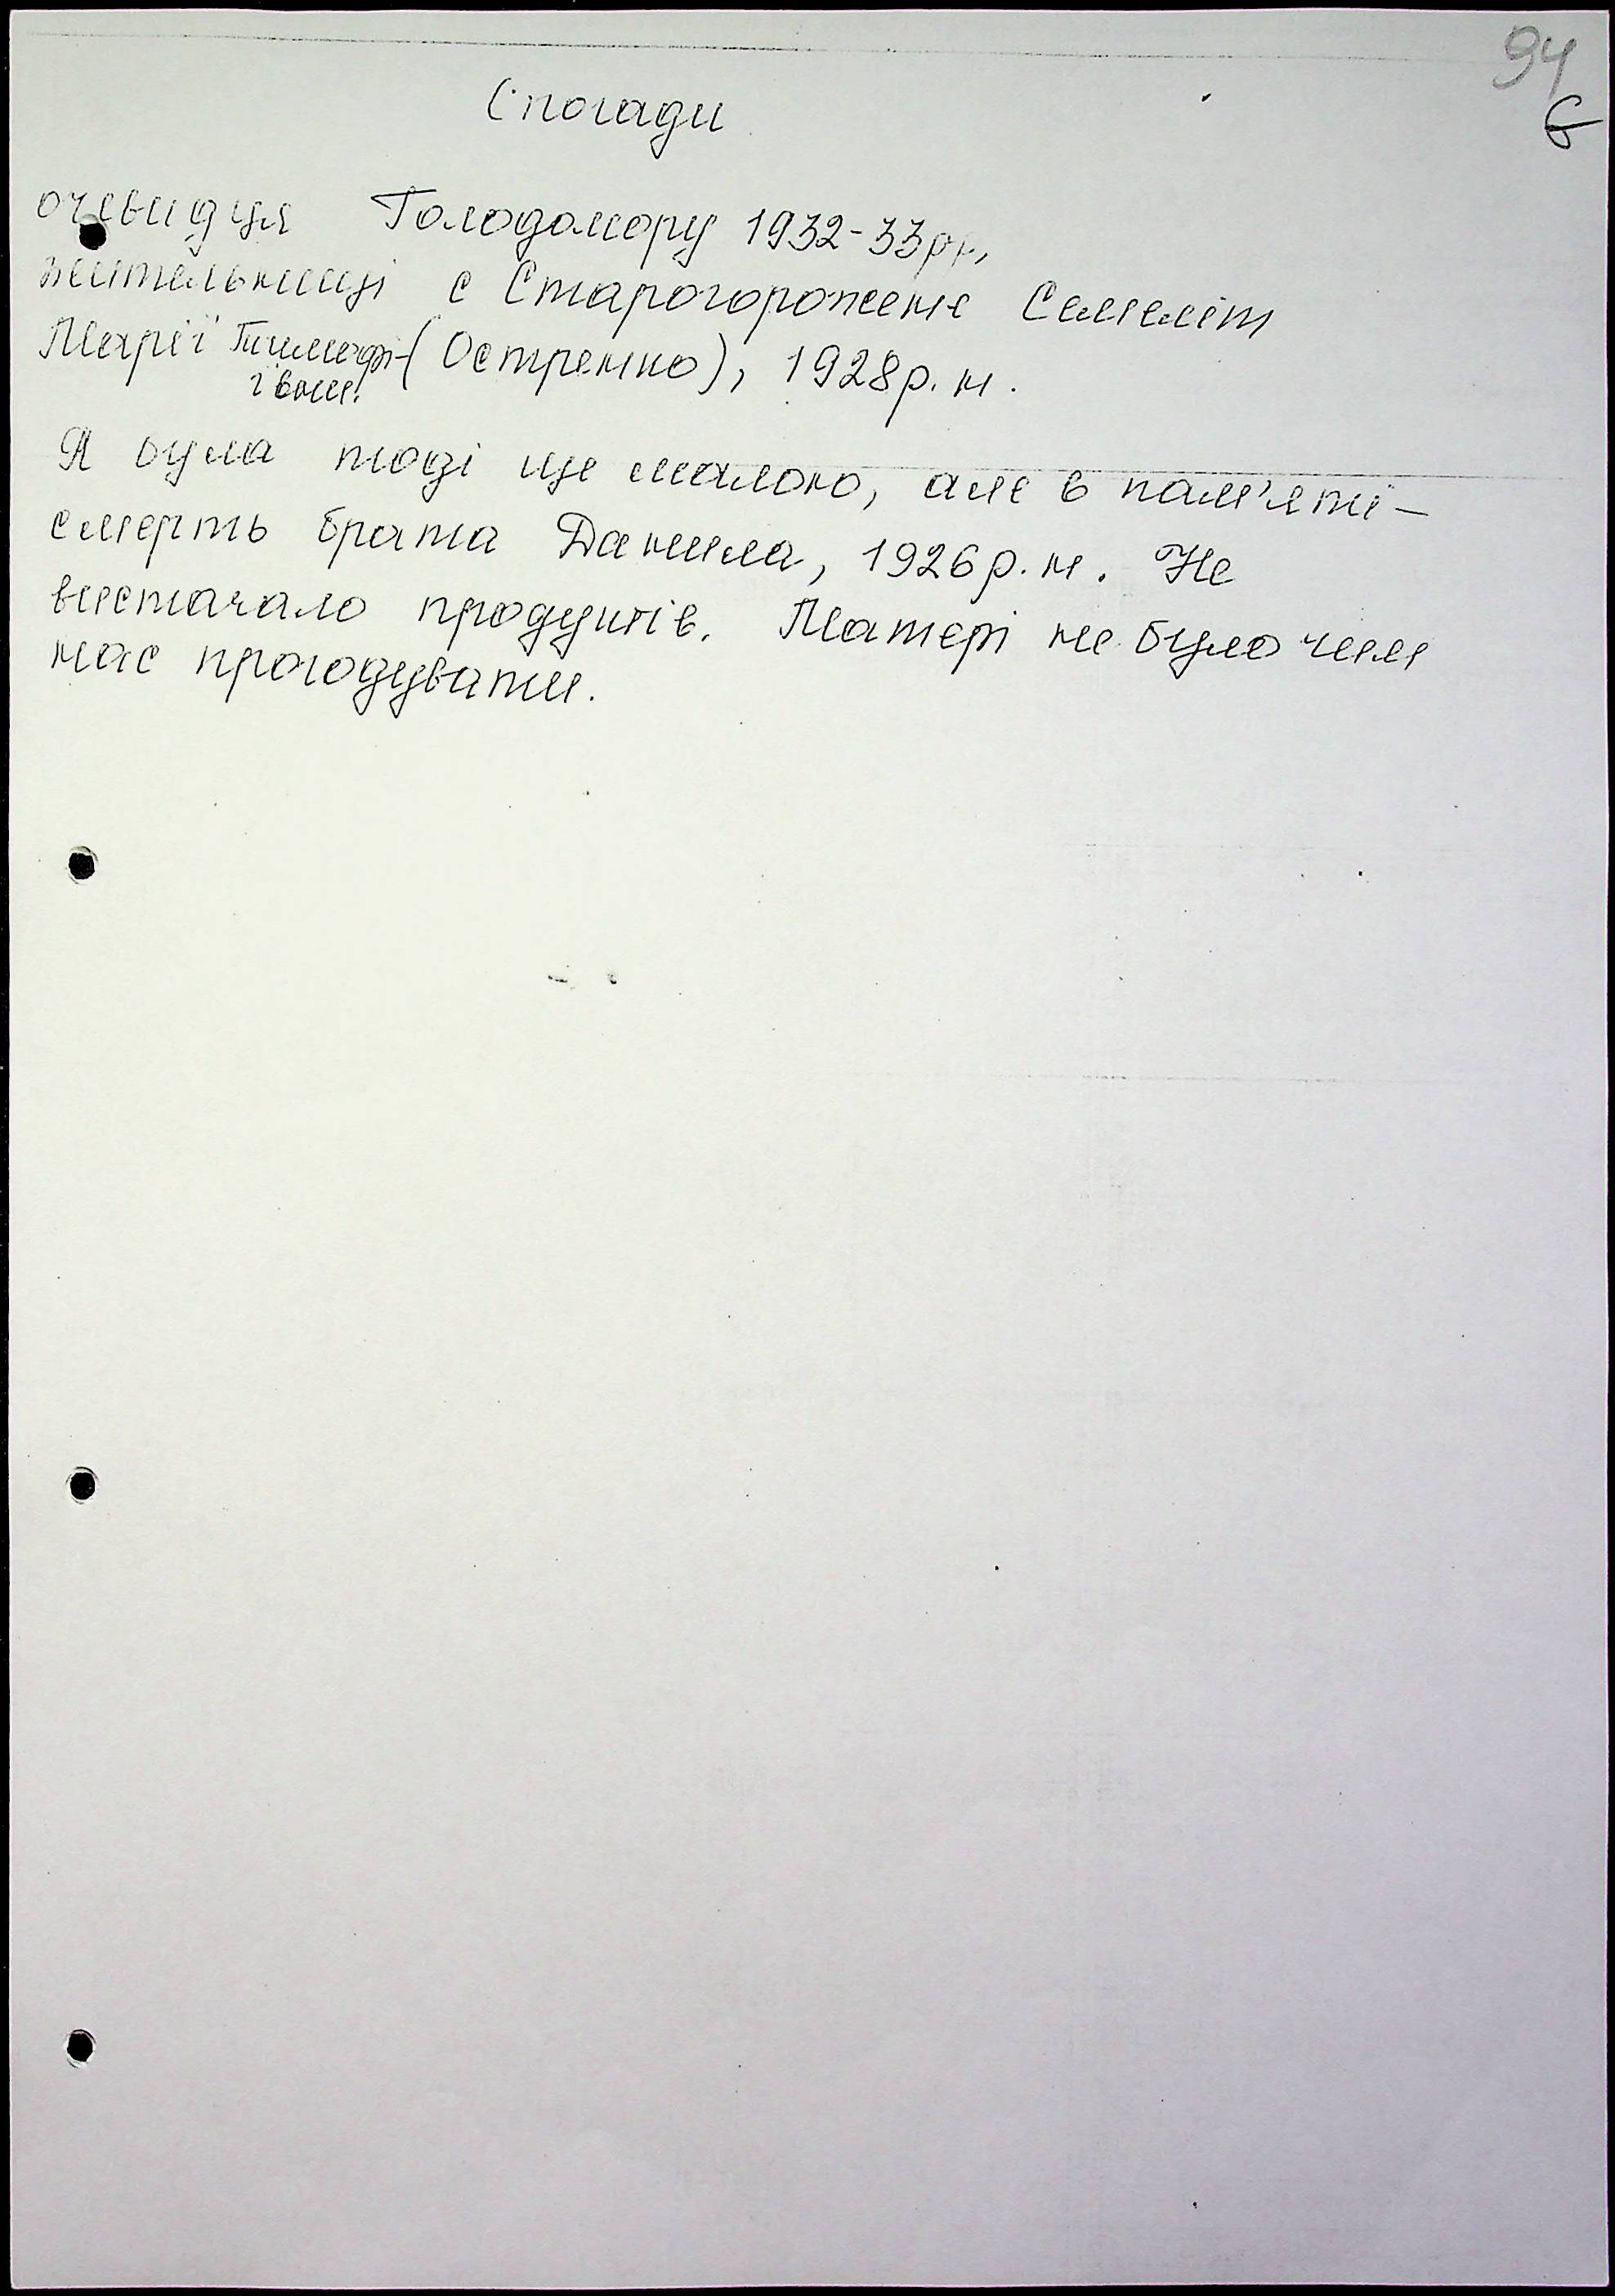 94
6
Спогади
очевидця Голодомору 1932-33рр.,
жительниці с Старогорожене
Марії Тимофі- (Остренко), 1928р.н.
ївни.
Я була тоді ще малою, але в пам'яті –
смерть брата Данила, 1926р.н. Не
вистачало продуктів. Матері не було чим
нас прогодувати.